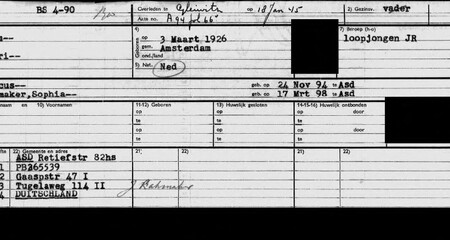 BS 4-90
Overleden te Gleiwitz op 18 Jan 45 2) Gezinsv. vader
Acte no. A 94 fol 66
4) 7) Beroep (h-o)
Geboren op 3 Maart 1926 loopjongen JR
gem. Amsterdam
5) Nat. Ned
cus-- geb. op 24 Nov 94 te Asd
maker,Sophia-- geb. op 17 Mrt 98 te Asd
naam en 10) Voornamen 11-12) Geboren 13) Huwelijk gesloten 14-15-16) Huwelijk ontbonden
op op op door
te te te
op op op door
te te te
22) Gemeente en adres 21) 22) 21) 22) 21) 22)
ASD Retiefstr 82hs
1 PB365539
2 Gaaspstr 47 I
3 Tugelaweg 114 II
4 DUITSCHLAND